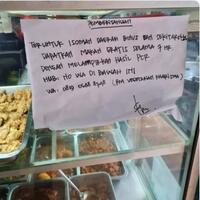 PEMBERITAHUAN!
TERUNTUK ISOMAN DAERAH DAN SEKITARNYA
DAPATKAN MAKAN GRATIS SELAMA 7 HR
DENGAN MELAMPIRKAN HASIL PCR
HUB. NO WA DI BAWAH INI
WA.